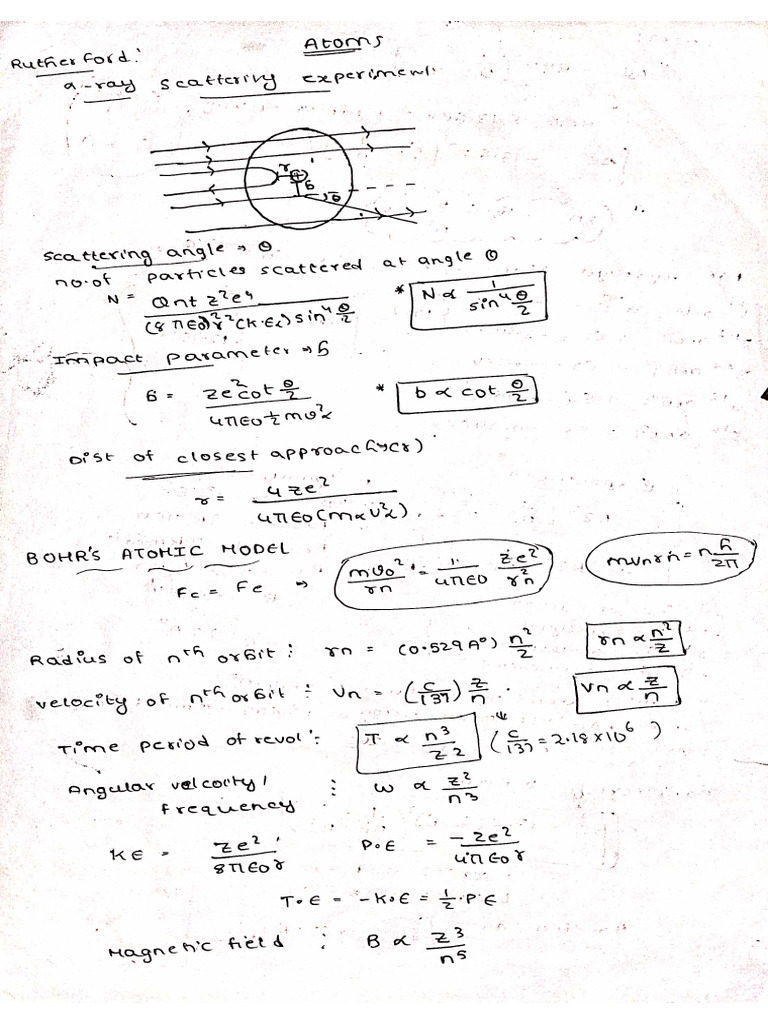 Atoms
Rutherford:
α-ray scattering experiment.
r
b
θ
Scattering angle → θ
no. of particles scattered at angle θ
N = Qnt z²e⁴ / (8πε0)²r²(K.E)² sin⁴ θ/2
* N ∝ 1 / sin⁴ θ/2
Impact parameter → b
b = ze² cot θ/2 / 4πε0 ½ mv²α
* b ∝ cot θ/2
Dist of closest approach (r)
r = 4ze² / 4πε0 (mα v²α).
BOHR'S ATOMIC MODEL
Fc = Fe → mv0² / rn = 1 / 4πε0 ze² / r²n
mvnrn = n h / 2π
Radius of nth orbit : rn = (0.529A°) n² / z
rn ∝ n² / z
velocity of nth orbit : Vn = (c / 137) z / n.
Vn ∝ z / n
Time period of revol : T ∝ n³ / z²
(c / 137 = 2.18×10⁶)
Angular velcoity/
frequency : ω ∝ z² / n³
KE = ze² / 8πε0r
P.E = -ze² / 4πε0r
T.E = -K.E = ½ .P.E
Magnetic field : B ∝ z³ / n⁵